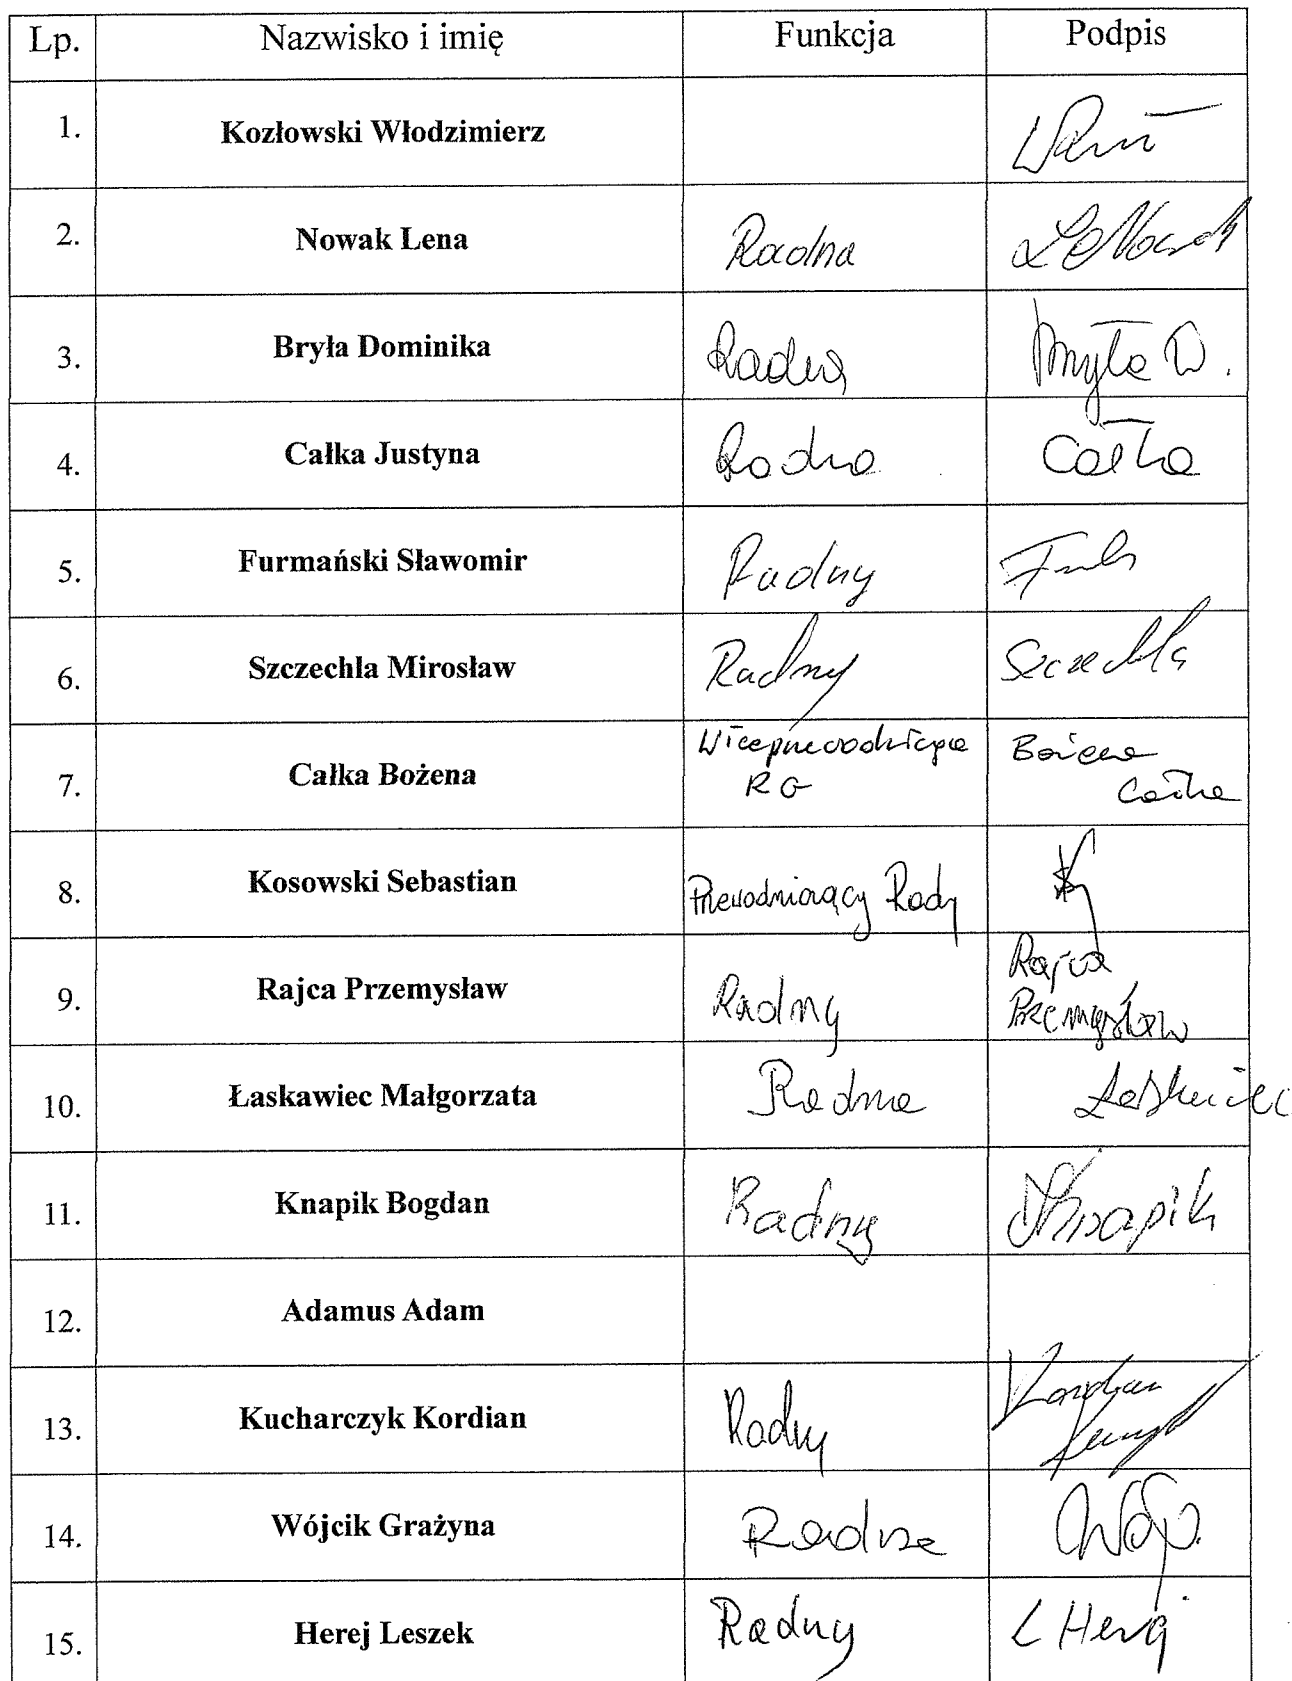 Lp. Nazwisko i imię Funkcja Podpis
1. Kozłowski Włodzimierz
2. Nowak Lena Radna
3. Bryła Dominika Radna Bryła D.
4. Całka Justyna Radna Całka
5. Furmański Sławomir Radny
6. Szczechla Mirosław Radny Szczechla
7. Całka Bożena Wiceprzewodnicząca RG Bożena Całka
8. Kosowski Sebastian Przewodniczący Rady
9. Rajca Przemysław Radny Rajca Przemysław
10. Łaskawiec Małgorzata Radna Łaskawiec
11. Knapik Bogdan Radny Knapik
12. Adamus Adam
13. Kucharczyk Kordian Radny Kordian
14. Wójcik Grażyna Radna
15. Herej Leszek Radny L Herej